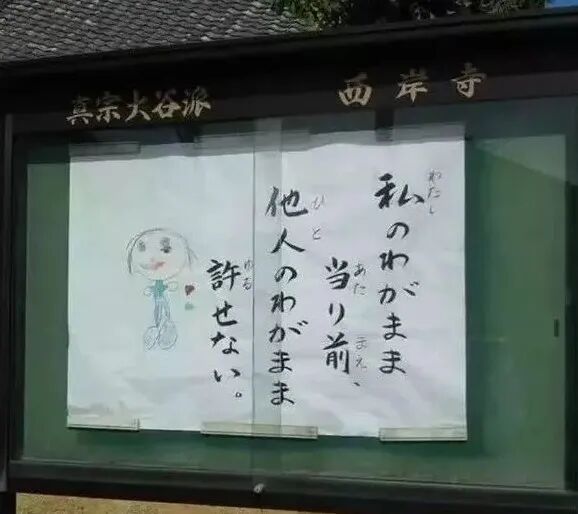 真宗大谷派 西岸寺
私のわがまま
わたし
当り前、
あた まえ
他人のわがまま
ひと
許せない。
ゆる